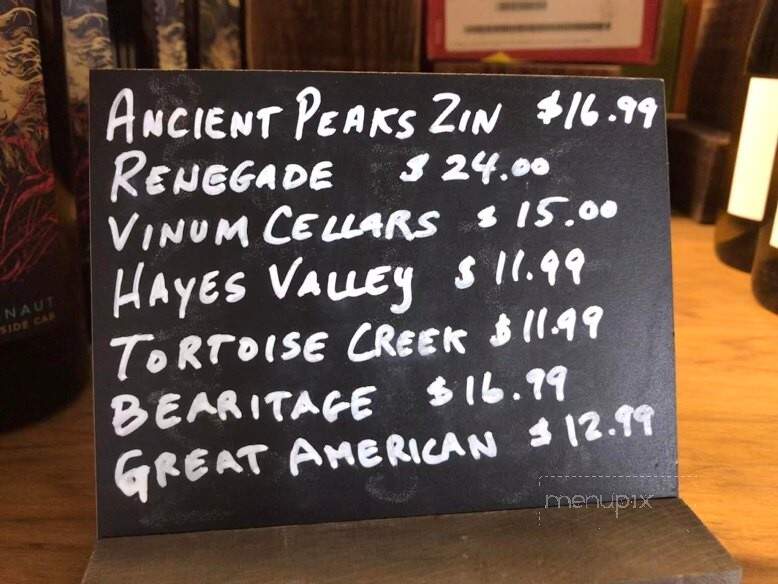 ANCIENT PEAKS ZIN $16.99
RENEGADE $24.00
VINUM CELLARS $15.00
HAYES VALLEY $11.99
TORTOISE CREEK $11.99
BEARITAGE $16.99
GREAT AMERICAN $12.99
NAUT
SIDE CAR
menupix